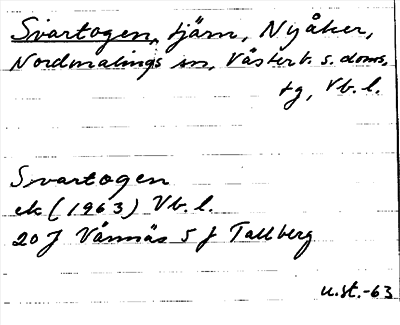 Svartogen, tjärn, Nyåker,
Nordmalings sn, Västerb. s. doms.
tg, Vb. l.
Svartogen
ek (1963) Vb. l.
20 J Vännäs 5 f Tallberg
u.st.-63